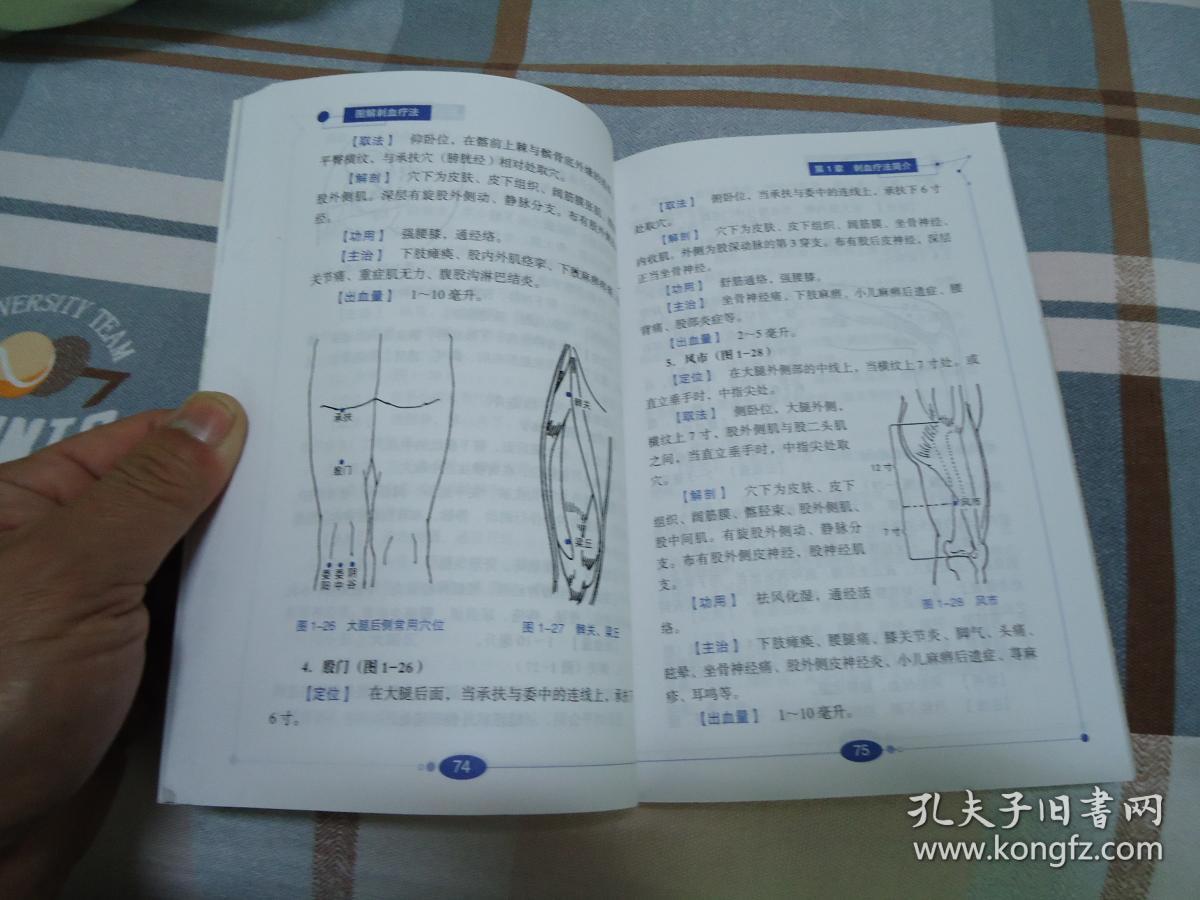 图解刺血疗法
【取法】 仰卧位，在髂前上棘与髌骨底外缘的连线
平臀横纹，与承扶穴（膀胱经）相对处取穴。
【解剖】 穴下为皮肤、皮下组织、阔筋膜张肌、
股外侧肌。深层有旋股外侧动、静脉分支。布有股外侧
经。
【功用】 强腰膝，通经络。
【主治】 下肢瘫痪、股内外肌痉挛、下肢麻痹疼痛、
关节痛、重症肌无力、腹股沟淋巴结炎。
【出血量】 1～10毫升。
承扶
殷门
委阳
委中
阴谷
髀关
梁丘
图1-26 大腿后侧常用穴位
图1-27 髀关、梁丘
4. 殷门（图1-26）
【定位】 在大腿后面，当承扶与委中的连线上，承扶下
6寸。
74
第1章 刺血疗法简介
【取法】 俯卧位，当承扶与委中的连线上，承扶下6寸
处取穴。
【解剖】 穴下为皮肤、皮下组织、阔筋膜、坐骨神经、
内收肌，外侧为股深动脉的第3穿支。布有股后皮神经，深层
正当坐骨神经。
【功用】 舒筋通络，强腰膝。
【主治】 坐骨神经痛，下肢麻痹，小儿麻痹后遗症、腰
背痛、股部炎症等。
【出血量】 2～5毫升。
5. 风市（图1-28）
【定位】 在大腿外侧部的中线上，当横纹上7寸处。或
直立垂手时，中指尖处。
【取法】 侧卧位，大腿外侧，
横纹上7寸，股外侧肌与股二头肌
之间，当直立垂手时，中指尖处取
穴。
【解剖】 穴下为皮肤、皮下
组织、阔筋膜、髂胫束、股外侧肌、
股中间肌。有旋股外侧动、静脉分
支。布有股外侧皮神经，股神经肌
支。
【功用】 祛风化湿，通经活
络。
12寸
7寸
风市
图1-28 风市
【主治】 下肢瘫痪、腰腿痛、膝关节炎、脚气、头痛、
眩晕、坐骨神经痛、股外侧皮神经炎、小儿麻痹后遗症、荨麻
疹、耳鸣等。
【出血量】 1～10毫升。
75
VERSITY TEAM
孔夫子旧书网
www.kongfz.com